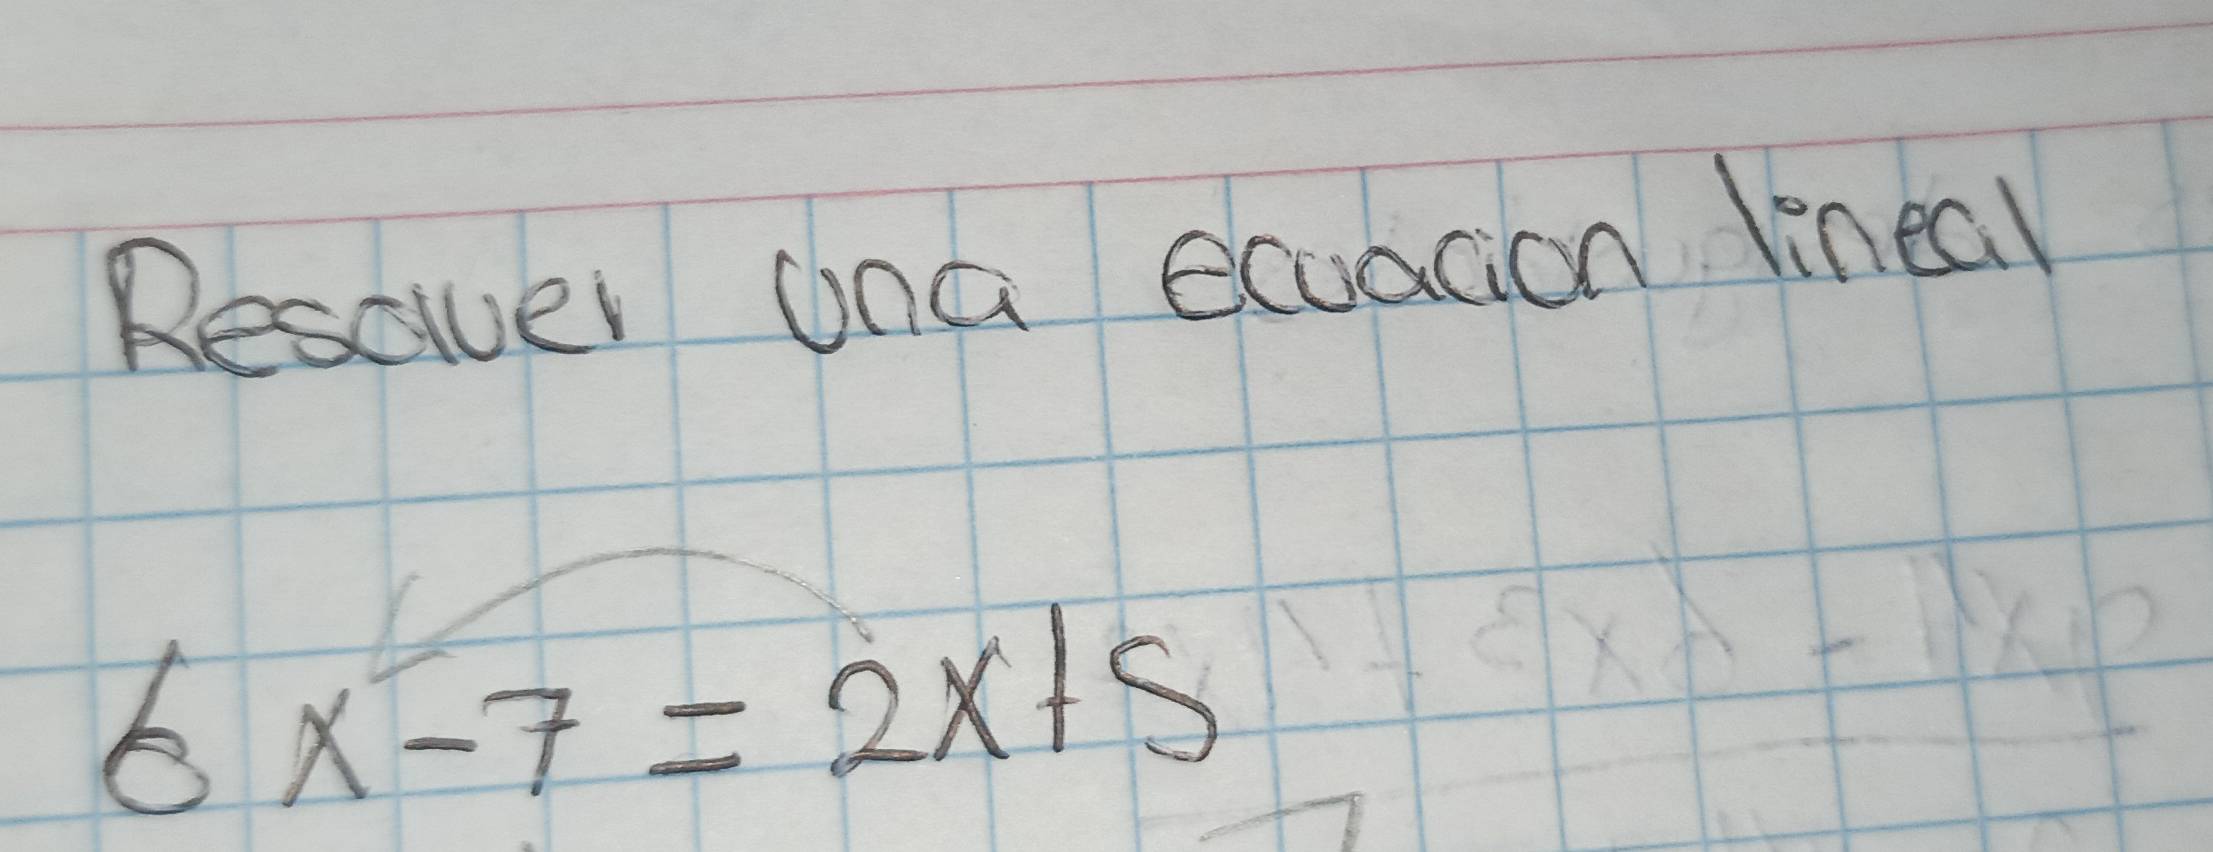 Resolver una ecuacion lineal
6x-7=2x+5